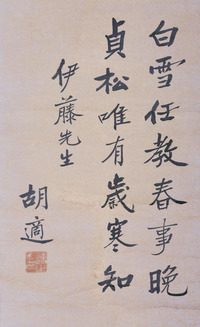 白雪任教春事晚
貞松唯有歲寒知
伊藤先生
胡適